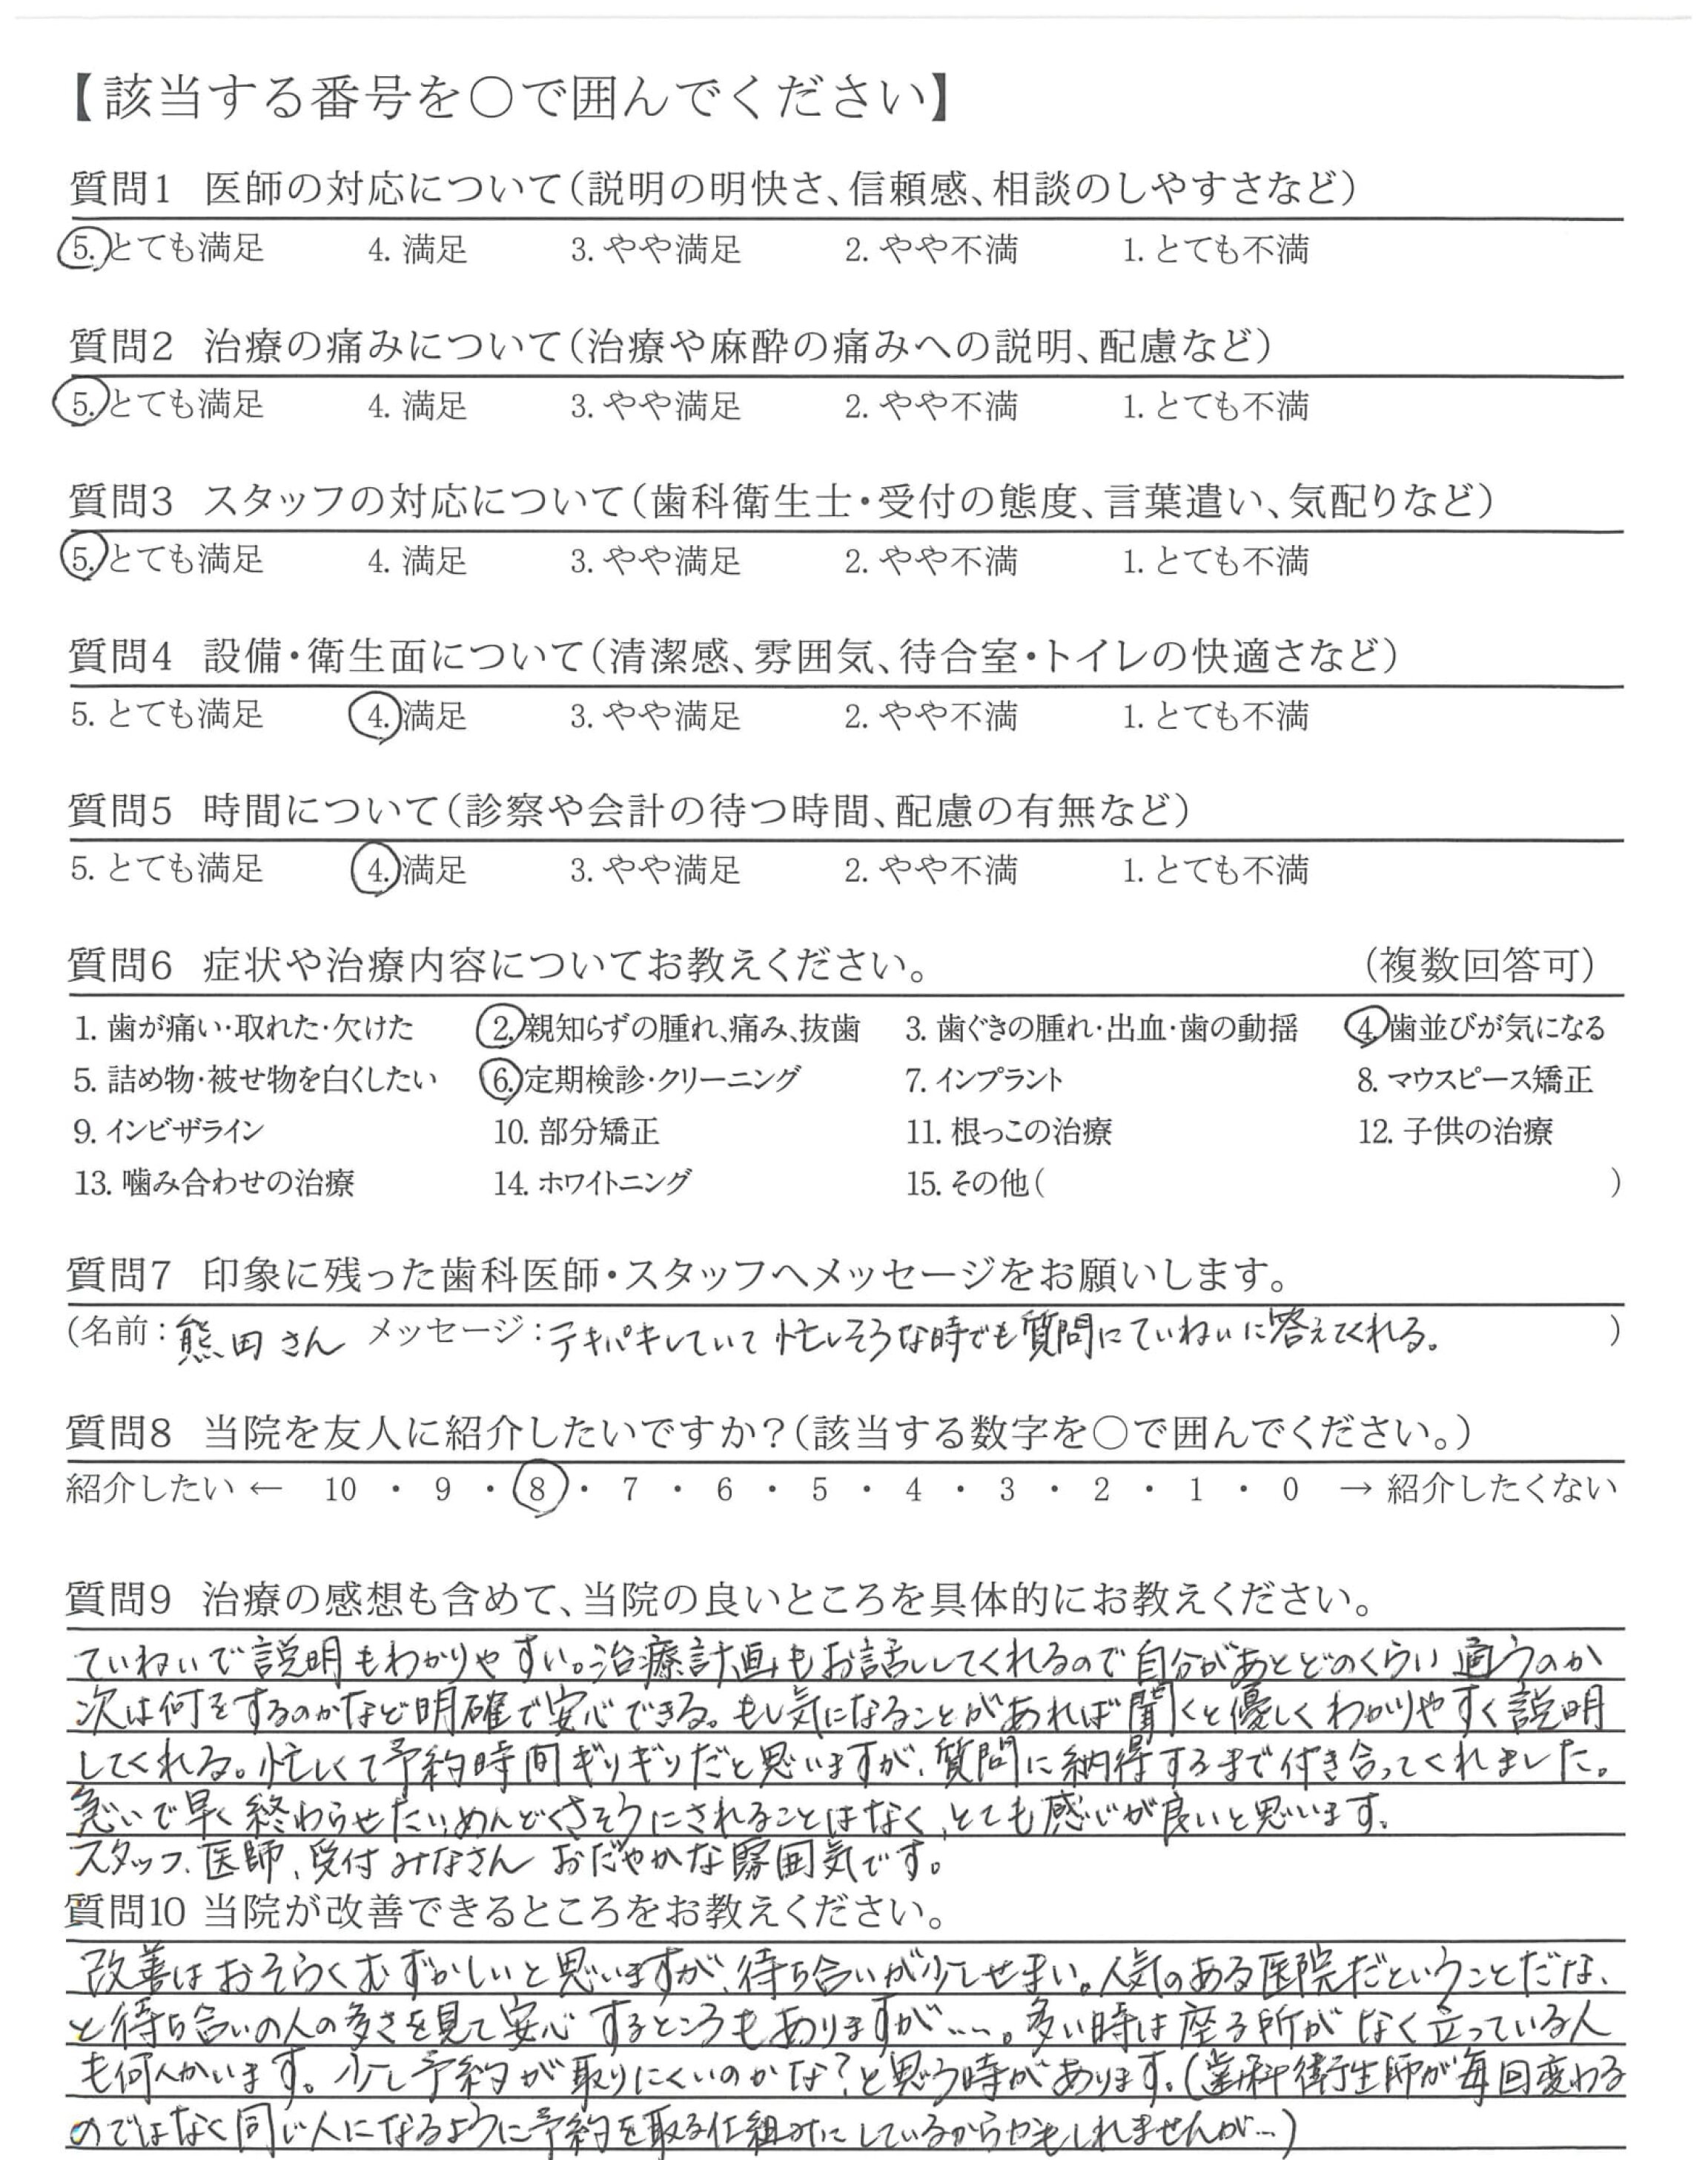 【該当する番号を○で囲んでください】
質問1 医師の対応について(説明の明快さ、信頼感、相談のしやすさなど)
5. とても満足 4. 満足 3. やや満足 2. やや不満 1. とても不満
質問2 治療の痛みについて(治療や麻酔の痛みへの説明、配慮など)
5. とても満足 4. 満足 3. やや満足 2. やや不満 1. とても不満
質問3 スタッフの対応について(歯科衛生士・受付の態度、言葉遣い、気配りなど)
5. とても満足 4. 満足 3. やや満足 2. やや不満 1. とても不満
質問4 設備・衛生面について(清潔感、雰囲気、待合室・トイレの快適さなど)
5. とても満足 4. 満足 3. やや満足 2. やや不満 1. とても不満
質問5 時間について(診察や会計の待つ時間、配慮の有無など)
5. とても満足 4. 満足 3. やや満足 2. やや不満 1. とても不満
質問6 症状や治療内容についてお教えください。 (複数回答可)
1. 歯が痛い・取れた・欠けた 2. 親知らずの腫れ、痛み、抜歯 3. 歯ぐきの腫れ・出血・歯の動揺 4. 歯並びが気になる
5. 詰め物・被せ物を白くしたい 6. 定期検診・クリーニング 7. インプラント 8. マウスピース矯正
9. インビザライン 10. 部分矯正 11. 根っこの治療 12. 子供の治療
13. 噛み合わせの治療 14. ホワイトニング 15. その他( )
質問7 印象に残った歯科医師・スタッフへメッセージをお願いします。
(名前:熊田さん メッセージ:テキパキしていて忙しそうな時でも質問にていねいに答えてくれる。 )
質問8 当院を友人に紹介したいですか?(該当する数字を○で囲んでください。)
紹介したい ← 10 ・ 9 ・ 8 ・ 7 ・ 6 ・ 5 ・ 4 ・ 3 ・ 2 ・ 1 ・ 0 → 紹介したくない
質問9 治療の感想も含めて、当院の良いところを具体的にお教えください。
ていねいで説明もわかりやすい。治療計画もお話ししてくれるので自分があとどのくらい通うのか
次は何をするのかなど明確で安心できる。もし気になることがあれば聞くと優しくわかりやすく説明
してくれる。忙しくて予約時間ギリギリだと思いますが、質問に納得するまで付き合ってくれました。
急いで早く終わらせたい、めんどくさそうにされることはなく、とても感じが良いと思います。
スタッフ、医師、受付みなさん おだやかな雰囲気です。
質問10 当院が改善できるところをお教えください。
改善はおそらくむずかしいと思いますが、待ち合いが少しせまい。人気のある医院だということだな、
と待ち合いの人の多さを見て安心するところもありますが…。多い時は座る所がなく立っている人
も何人かいます。少し予約が取りにくいのかな?と思う時があります。(歯科衛生師が毎回変わる
のではなく同じ人になるように予約を取る仕組みにしているからかもしれませんが…)